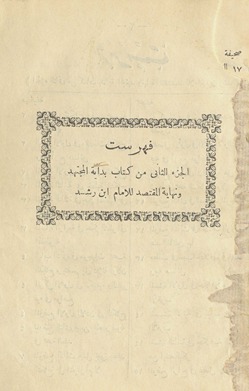 صحيفة
١٧ ال
فهرست
الجزء الثانى من كتاب بداية المجتهد
ونهاية المقتصد للامام ابن رشد